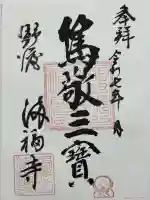 奉拝
令和七年 月
篤敬三寶
野渡
満福寺